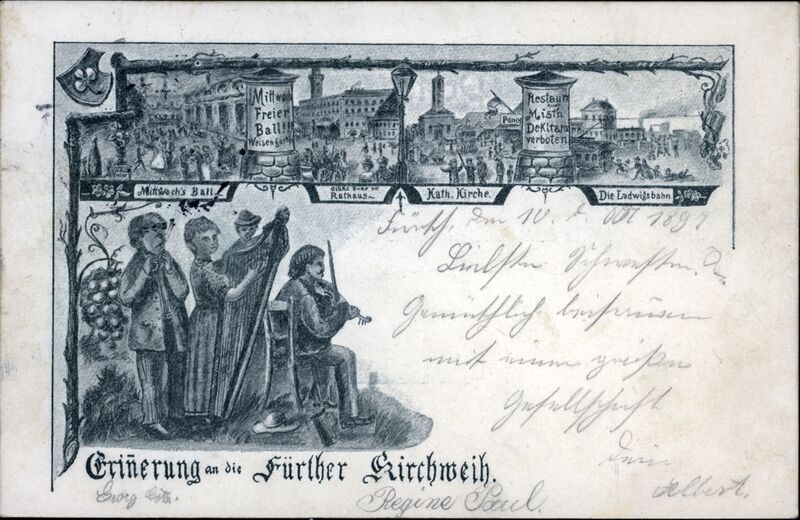 Mittwoch
Freier
Ball!!!
Weisengarten
Restaur
Misth
DeKltanz
verboten
Pano
Mittwoch's Ball.
Rathaus
Kath. Kirche.
Die Ludwigsbahn.
Fürth, den 10. d. Okt 1897
Liebste Schwester.
Gemüthlich beisamen
mit einer großen
Gesellschaft
Dein
Albert.
Eriñerung an die Fürther Kirchweih.
Georg
Regine Paul.